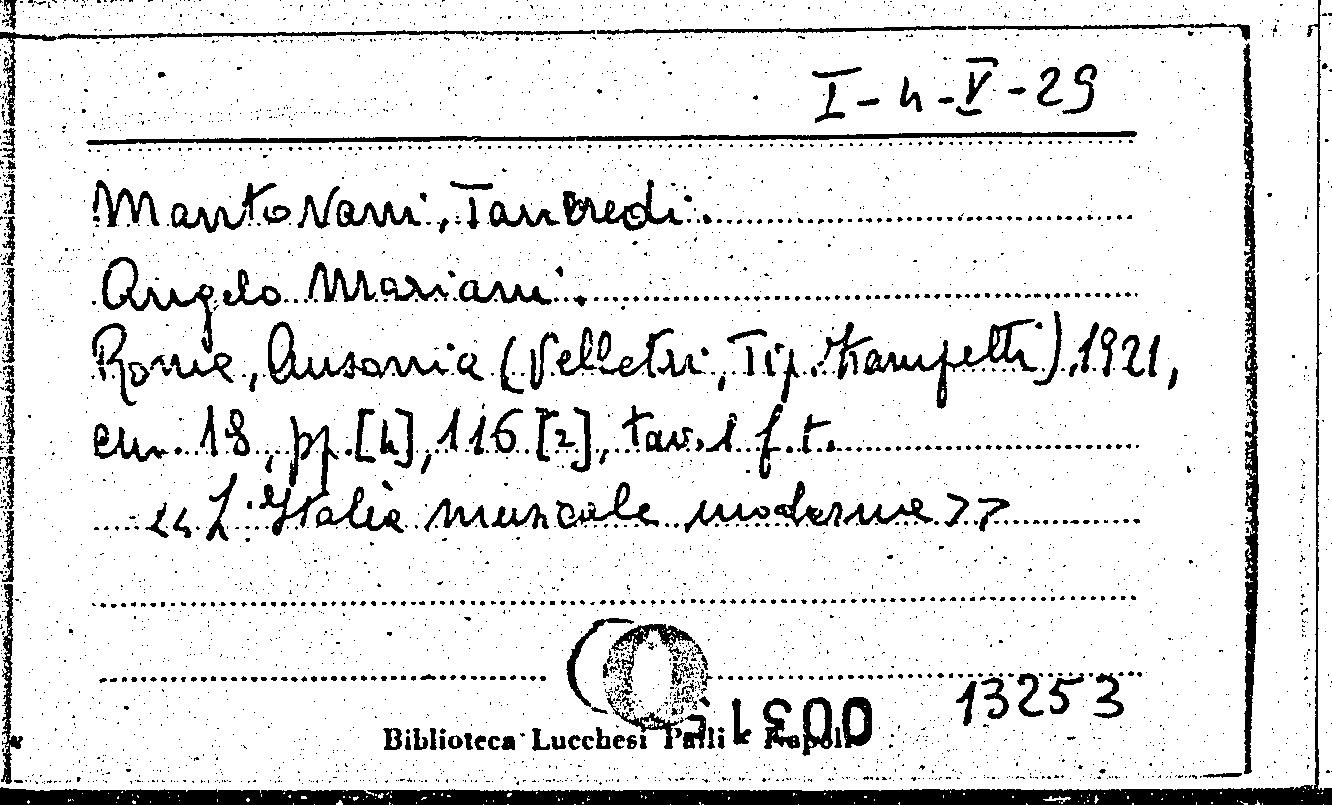 I-4-V-29
Mantovani, Tancredi.
Angelo Mariani.
Roma, Ausonia (Velletri, Tip. Stampetti), 1921,
cm. 18, pp. [4], 116 [2], tav. 1 f. t.
<<L'Italia musicale moderna>>
13253
Biblioteca Lucchesi Palli - Napoli